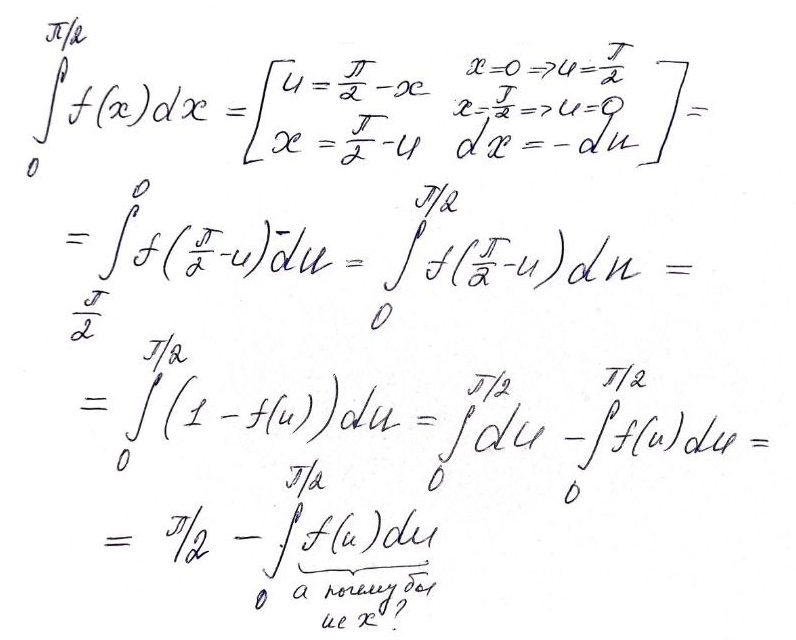 ∫₀^{π/2} f(x)dx = [ u = π/2 - x   x=0 => u = π/2
x = π/2 => u = 0
x = π/2 - u   dx = -du ] =
= ∫_{π/2}^0 f(π/2 - u) -du = ∫₀^{π/2} f(π/2 - u) du =
= ∫₀^{π/2} (1 - f(u)) du = ∫₀^{π/2} du - ∫₀^{π/2} f(u) du =
= π/2 - ∫₀^{π/2} f(u) du
а почему бы
не x?